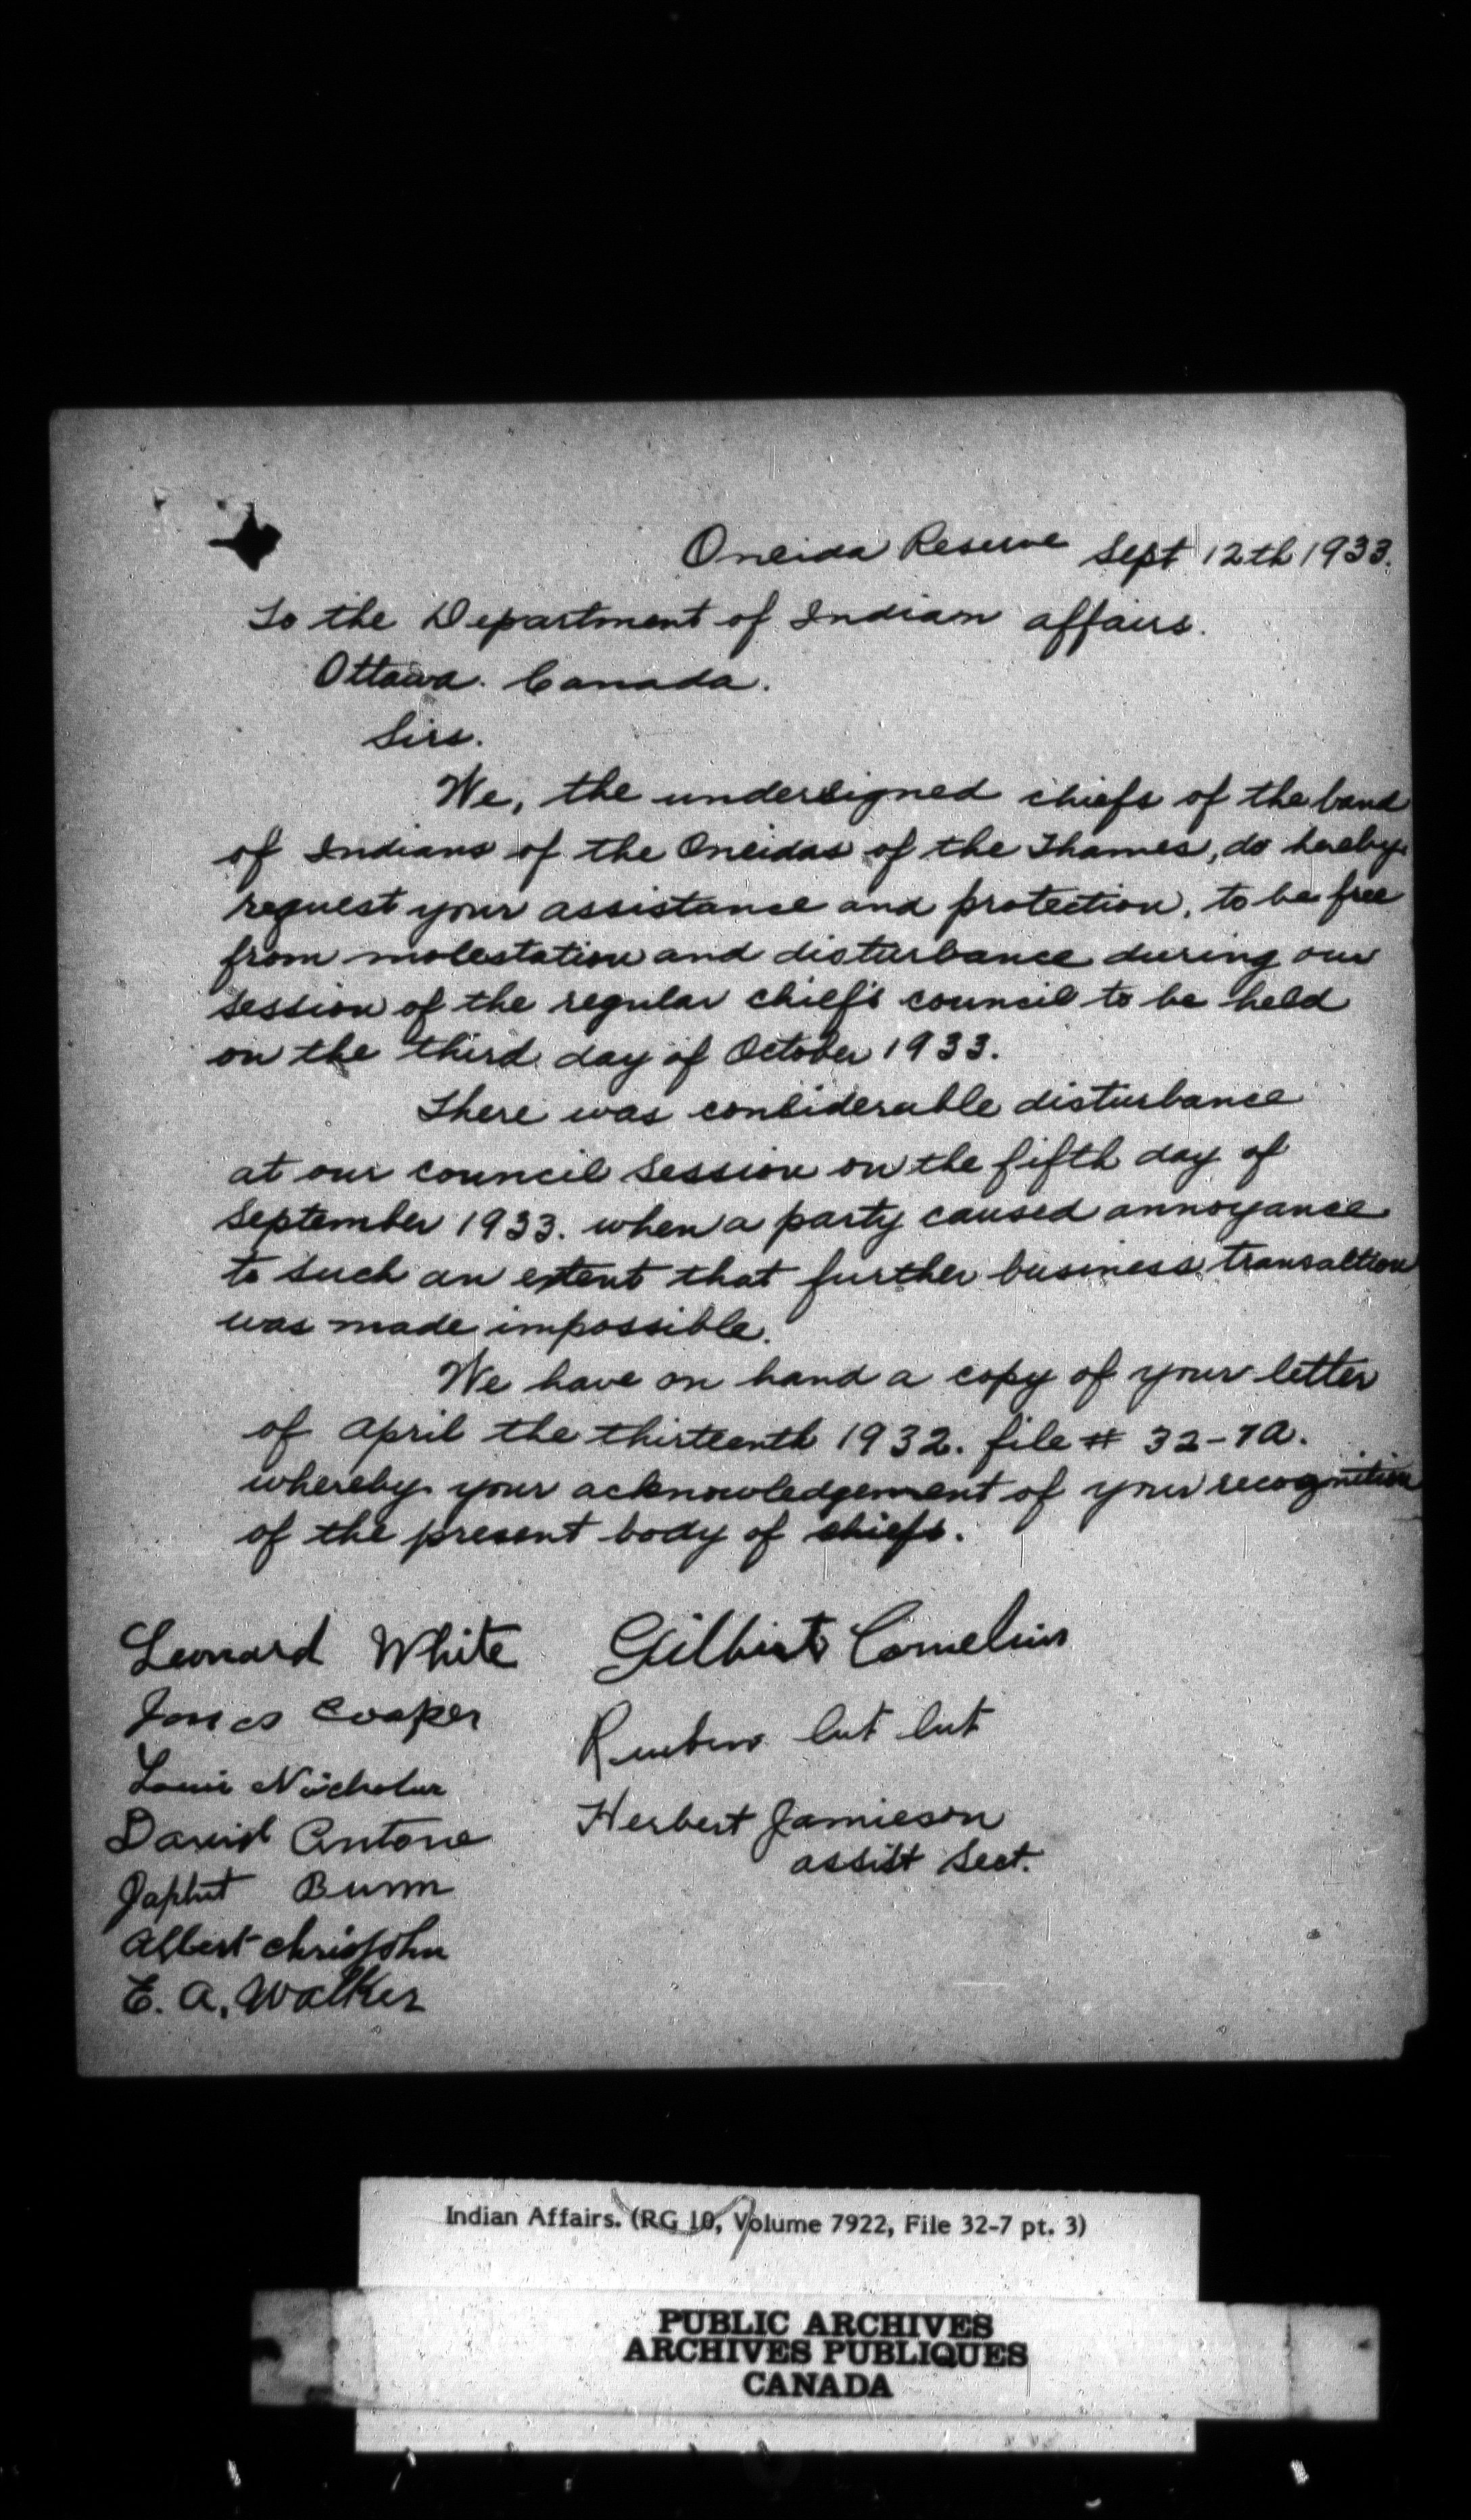 Oneida Reserve Sept 12th 1933.
To the Department of Indian affairs.
Ottawa. Canada.
Sirs.
We, the undersigned chiefs of the band
of Indians of the Oneidas of the Thames, do hereby
request your assistance and protection, to be free
from molestation and disturbance during our
session of the regular chief's council to be held
on the third day of October 1933.
There was considerable disturbance
at our council session on the fifth day of
September 1933. when a party caused annoyance
to such an extent that further business transaction
was made impossible.
We have on hand a copy of your letter
of april the thirteenth 1932. file # 32-7A.
whereby your acknowledgement of your recognition
of the present body of chiefs.
Leonard White Gilbert Cornelius
James Cooper
Reuben cut cut
Louis Nicholas
Herbert Jamieson
David Antone
assist Sect.
Japhet Burm
Albert chrisjohn
E. A. Walker
Indian Affairs. (RG 10, Volume 7922, File 32-7 pt. 3)
PUBLIC ARCHIVES
ARCHIVES PUBLIQUES
CANADA